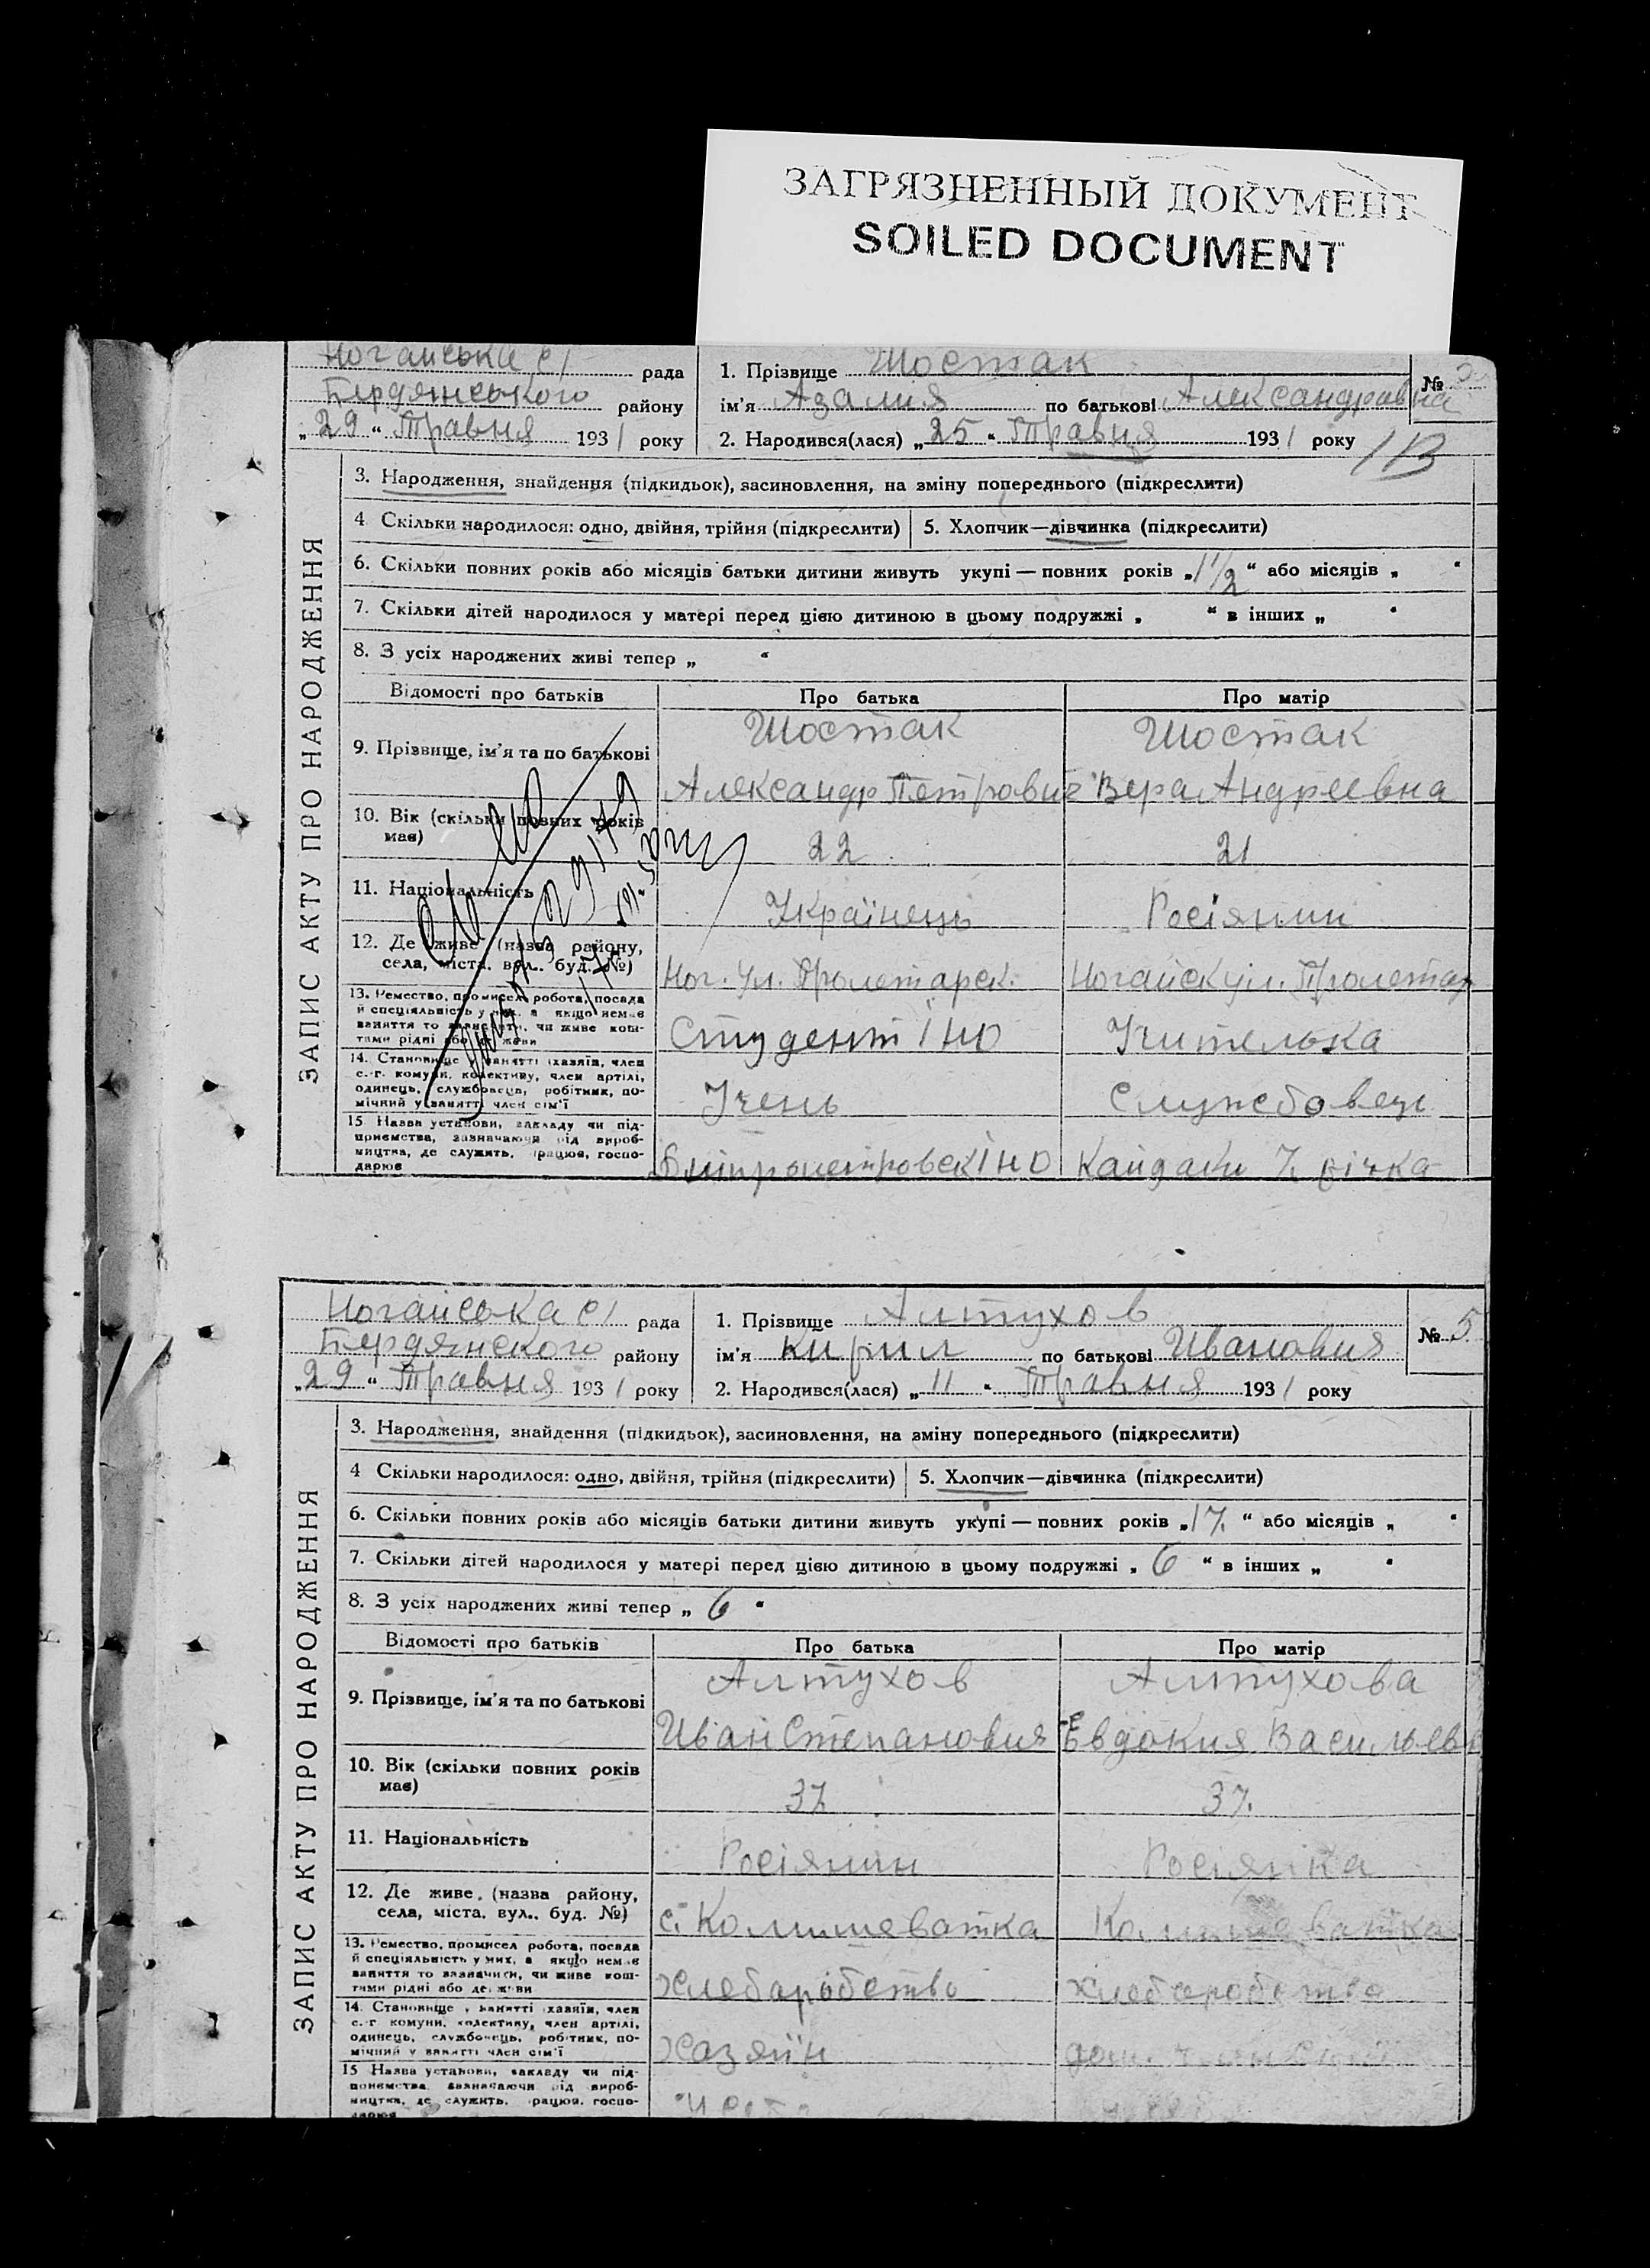 ЗАГРЯЗНЕННЫЙ ДОКУМЕНТ
SOILED DOCUMENT
Ногайська с/ рада
Бердянського району
„29“ Травня 1931 року
1. Прізвище Шостак
ім'я Азалия по батькові Александравна
2. Народився(лася) „25“ Травня 1931 року
№
ЗАПИС АКТУ ПРО НАРОДЖЕННЯ
3. Народження, знайдення (підкидьок), засиновлення, на зміну попереднього (підкреслити)
4 Скільки народилося: одно, двійня, трійня (підкреслити)
5. Хлопчик—дівчинка (підкреслити)
6. Скільки повних років або місяців батьки дитини живуть укупі — повних років „1 1/2“ або місяців „ “
7. Скільки дітей народилося у матері перед цією дитиною в цьому подружжі „ “ в інших „ “
8. З усіх народжених живі тепер „ “
Відомості про батьків Про батька Про матір
9. Прізвище, ім'я та по батькові
Шостак Шостак
Александр Петрович Вера Андреевна
10. Вік (скільки повних років має)
22 21
11. Національність
Українець Росіянин
12. Де живе (назва району, села, міста, вул., буд. №)
Ног. Ул. Пролетарск. Ногайск ул. Пролетар
13. Ремество, промисел, робота, посада
й спеціяльність у них, а якщо немає
заняття то зазначити, чи живе кош-
тами рідні або держави
Студент ІНО Учителька
14. Становище у занятті хазяїн, член
с.-г. комуни, колективу, член артілі,
одинець, службовець, робітник, по-
мічний у занятті член сім'ї
Учень Службовець
15 Назва установи, закладу чи під-
приємства, зазначаючи рід вироб-
ництва, де служить, працює, госпо-
дарює
Дніпропетровск ІНО Кайдаки 7 річка
Ногайська с/ рада
Бердянского району
„29“ Травня 1931 року
1. Прізвище Алтухов
ім'я Кирил по батькові Ивановия
2. Народився(лася) „11“ Травня 1931 року
№ 5
ЗАПИС АКТУ ПРО НАРОДЖЕННЯ
3. Народження, знайдення (підкидьок), засиновлення, на зміну попереднього (підкреслити)
4 Скільки народилося: одно, двійня, трійня (підкреслити)
5. Хлопчик—дівчинка (підкреслити)
6. Скільки повних років або місяців батьки дитини живуть укупі — повних років „17.“ або місяців „ “
7. Скільки дітей народилося у матері перед цією дитиною в цьому подружжі „6“ в інших „ “
8. З усіх народжених живі тепер „6“
Відомості про батьків Про батька Про матір
9. Прізвище, ім'я та по батькові
Алтухов Алтухова
Иван Степановия Евдокия Васильев
10. Вік (скільки повних років має)
37 37.
11. Національність
Росіянин Росіянка
12. Де живе (назва району, села, міста, вул., буд. №)
с. Колишеватка Колишеватка
13. Ремество, промисел робота, посада
й спеціяльність у них, а якщо немає
заняття то зазначити, чи живе кош-
тами рідні або держави
Хлеборобство Хлеборобство
14. Становище у занятті хазяїн, член
с.-г комуни, колективу, член артілі,
одинець, службовець, робітник, по-
мічний у занятті член сім'ї
Хазяїн
15 Назва установи, закладу чи під-
приємства, зазначаючи рід вироб-
ництва, де служить, працює, госпо-
дарює